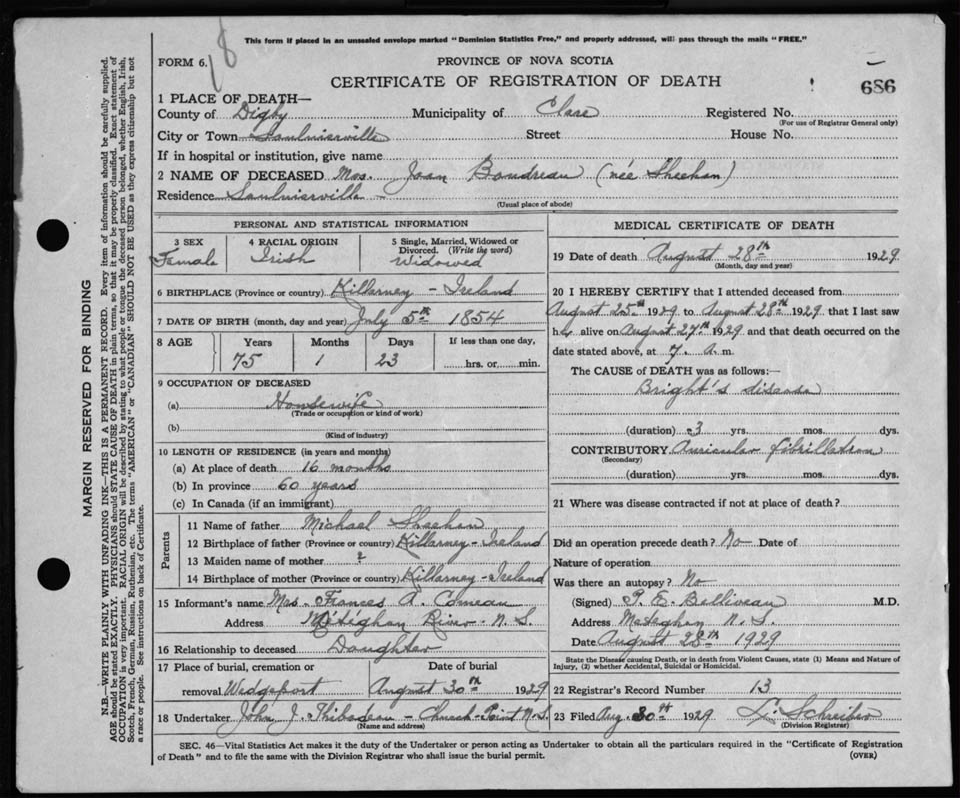 This form if placed in an unsealed envelope marked "Dominion Statistics Free," and property addressed, will pass through the mails "FREE."
18
FORM 6.
PROVINCE OF NOVA SCOTIA
CERTIFICATE OF REGISTRATION OF DEATH
686
1 PLACE OF DEATH—
County of Digby Municipality of Clare Registered No.
(For use of Registrar General only)
City or Town Saulnierville Street House No.
If in hospital or institution, give name
2 NAME OF DECEASED Mrs. Joan Boudreau (née Sheehan)
Residence Saulnierville -
(Usual place of abode)
MARGIN RESERVED FOR BINDING
N.B.—WRITE PLAINLY WITH UNFADING INK—THIS IS A PERMANENT RECORD. Every item of information should be carefully supplied.
AGE should be stated EXACTLY. PHYSICIANS should STATE CAUSE OF DEATH in plain terms, so that it may be properly classified. Exact statement of
OCCUPATION is very important. RACIAL ORIGIN will be described by stating to what people or tongue the deceased person belonged, whether English, Irish,
Scotch, French, German, Russian, Ruthenian, etc. The terms "AMERICAN" or "CANADIAN" SHOULD NOT BE USED as they express citizenship but not
a race or people. See instructions on back of Certificate.
PERSONAL AND STATISTICAL INFORMATION
3 SEX 4 RACIAL ORIGIN 5 Single, Married, Widowed or
Divorced. (Write the word)
Female Irish Widowed
6 BIRTHPLACE (Province or country) Killarney - Ireland
7 DATE OF BIRTH (month, day and year) July 5th 1854
8 AGE Years Months Days If less than one day,
75 1 23 hrs. or min.
9 OCCUPATION OF DECEASED
(a) Housewife
(Trade or occupation or kind of work)
(b)
(Kind of industry)
10 LENGTH OF RESIDENCE (in years and months)
(a) At place of death 16 months
(b) In province 60 years
(c) In Canada (if an immigrant)
Parents
11 Name of father Michael Sheehan
12 Birthplace of father (Province or country) Killarney - Ireland
13 Maiden name of mother ?
14 Birthplace of mother (Province or country) Killarney - Ireland
15 Informant's name Mrs. Frances A. Comeau
Address Meteghan River - N. S.
16 Relationship to deceased Daughter
17 Place of burial, cremation or Date of burial
removal Wedgeport August 30th 1929
18 Undertaker John J. Thibodeau - Church-Point N.S.
(Name and address)
MEDICAL CERTIFICATE OF DEATH
19 Date of death August 28th 1929
(Month, day and year)
20 I HEREBY CERTIFY that I attended deceased from
August 25th 1929 to August 28th 1929 that I last saw
her alive on August 27th 1929 and that death occurred on the
date stated above, at 7. a. m.
The CAUSE of DEATH was as follows:—
Bright's disease
(duration) 3 yrs. mos. dys.
CONTRIBUTORY Auricular fibrillation
(Secondary)
(duration) yrs. mos. dys.
21 Where was disease contracted if not at place of death?
Did an operation precede death? No Date of
Nature of operation
Was there an autopsy? No
(Signed) P. E. Belliveau M.D.
Address Meteghan N. S.
Date August 28th 1929
State the Disease causing Death, or in death from Violent Causes, state (1) Means and Nature of
Injury, (2) whether Accidental, Suicidal or Homicidal.
22 Registrar's Record Number 13
23 Filed Aug. 30th 1929 L. Schreiber
(Division Registrar)
SEC. 46—Vital Statistics Act makes it the duty of the Undertaker or person acting as Undertaker to obtain all the particulars required in the "Certificate of Registration
of Death" and to file the same with the Division Registrar who shall issue the burial permit. (OVER)